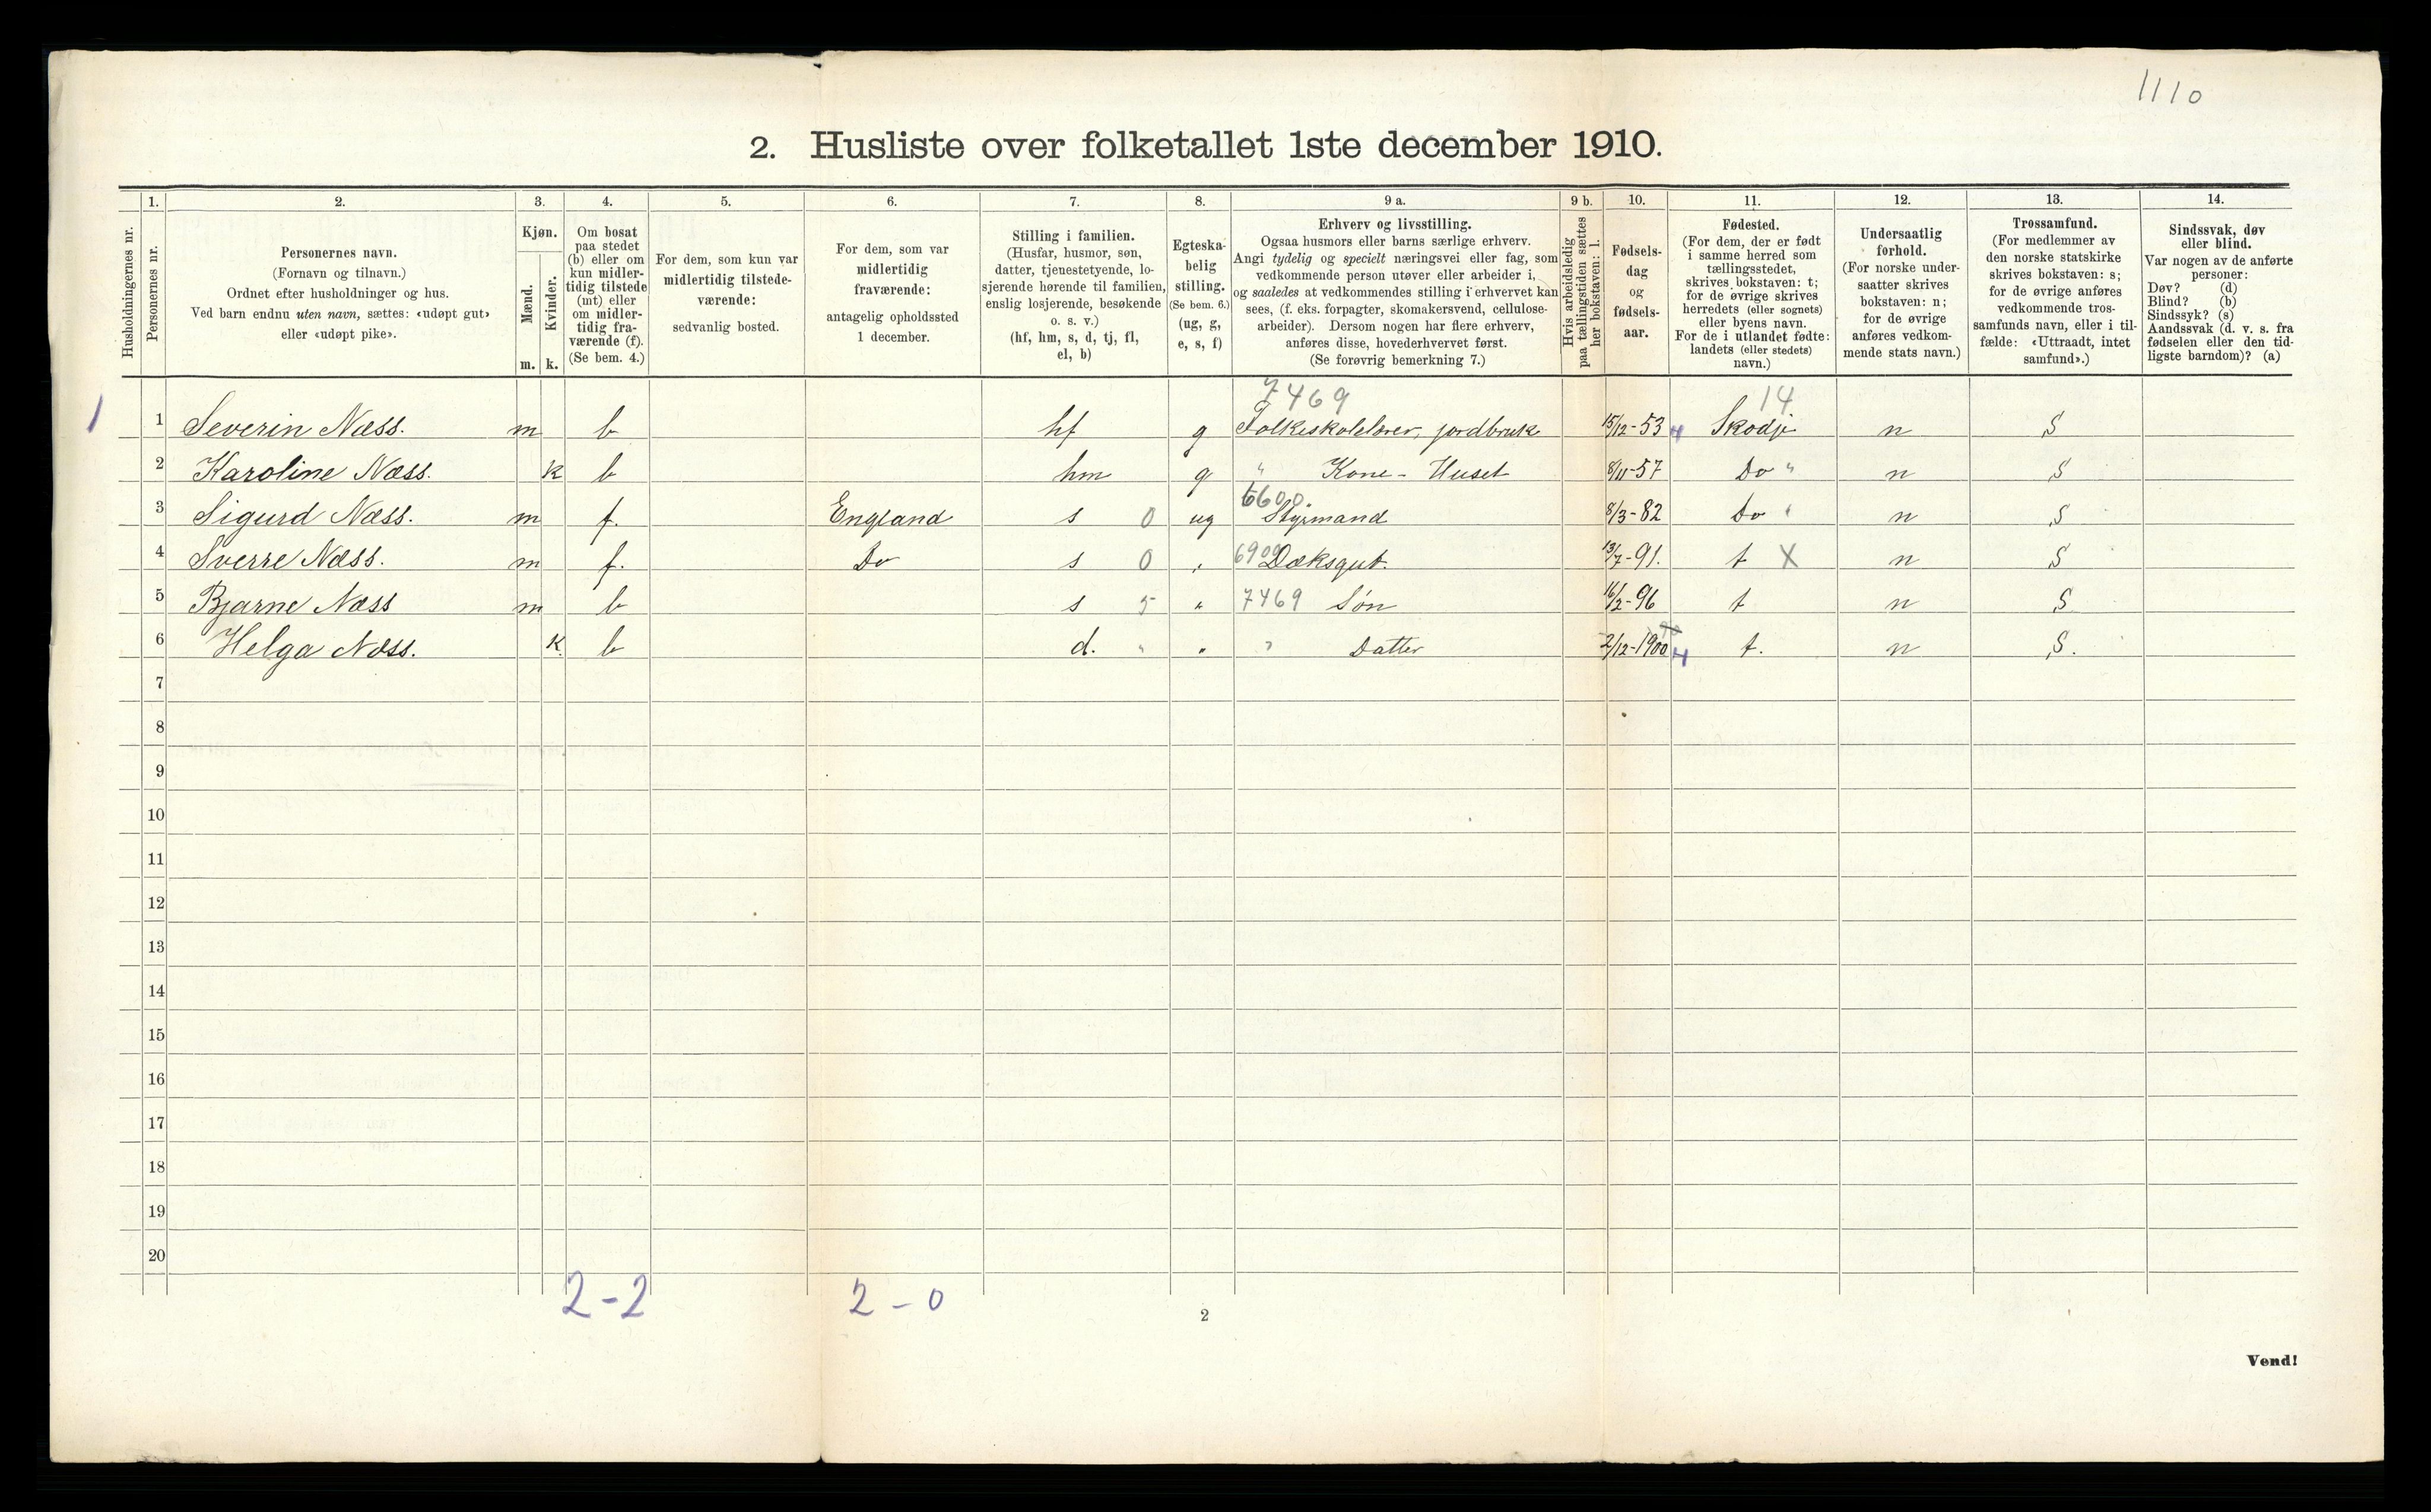 1110
2. Husliste over folketallet 1ste december 1910.
1. 2. 3. 4. 5. 6. 7. 8. 9 a. 9 b. 10. 11. 12. 13. 14.
Husholdningernes nr.
Personernes nr.
Personernes navn.
(Fornavn og tilnavn.)
Ordnet efter husholdninger og hus.
Ved barn endnu uten navn, sættes: «udøpt gut»
eller «udøpt pike».
Kjøn.
Mænd.
Kvinder.
m. k.
Om bosat
paa stedet
(b) eller om
kun midler-
tidig tilstede
(mt) eller
om midler-
tidig fra-
værende (f).
(Se bem. 4.)
For dem, som kun var
midlertidig tilstede-
værende:
sedvanlig bosted.
For dem, som var
midlertidig
fraværende:
antagelig opholdssted
1 december.
Stilling i familien.
(Husfar, husmor, søn,
datter, tjenestetyende, lo-
sjerende hørende til familien,
enslig losjerende, besøkende
o. s. v.)
(hf, hm, s, d, tj, fl,
el, b)
Egteska-
belig
stilling.
(Se bem. 6.)
(ug, g,
e, s, f)
Erhverv og livsstilling.
Ogsaa husmors eller barns særlige erhverv.
Angi tydelig og specielt næringsvei eller fag, som
vedkommende person utøver eller arbeider i,
og saaledes at vedkommendes stilling i erhvervet kan
sees, (f. eks. forpagter, skomakersvend, cellulose-
arbeider). Dersom nogen har flere erhverv,
anføres disse, hovederhvervet først.
(Se forøvrig bemerkning 7.)
Hvis arbeidsledig
paa tællingstiden sættes
her bokstaven: l.
Fødsels-
dag
og
fødsels-
aar.
Fødested.
(For dem, der er født
i samme herred som
tællingsstedet,
skrives bokstaven: t;
for de øvrige skrives
herredets (eller sognets)
eller byens navn.
For de i utlandet fødte:
landets (eller stedets)
navn.)
Undersaatlig
forhold.
(For norske under-
saatter skrives
bokstaven: n;
for de øvrige
anføres vedkom-
mende stats navn.)
Trossamfund.
(For medlemmer av
den norske statskirke
skrives bokstaven: s;
for de øvrige anføres
vedkommende tros-
samfunds navn, eller i til-
fælde: «Uttraadt, intet
samfund».)
Sindssvak, døv
eller blind.
Var nogen av de anførte
personer:
Døv? (d)
Blind? (b)
Sindssyk? (s)
Aandssvak (d. v. s. fra
fødselen eller den tid-
ligste barndom)? (a)
7469 14
1 1 Severin Næss. m b hf g Folkeskolelærer, jordbruk 15/12-53 4 Skodje n S
2 Karoline Næss. k b hm g " Kone - Huset 8/11-57 Do " n S
6600
3 Sigurd Næss. m f. England s 0 ug Styrmand 8/3-82 Do " n S
4 Sverre Næss. m f. Do s 0 " 6900 Dæksgut. 13/7-91. t X n S
5 Bjarne Næss m b s 5 " 7469 Søn 16/2-96 t n S
6 Helga Næss. k. b d. " " " Datter 2/12-1900 4 t. n S.
7
8
9
10
11
12
13
14
15
16
17
18
19
20
2-2 2-0
2
Vend!